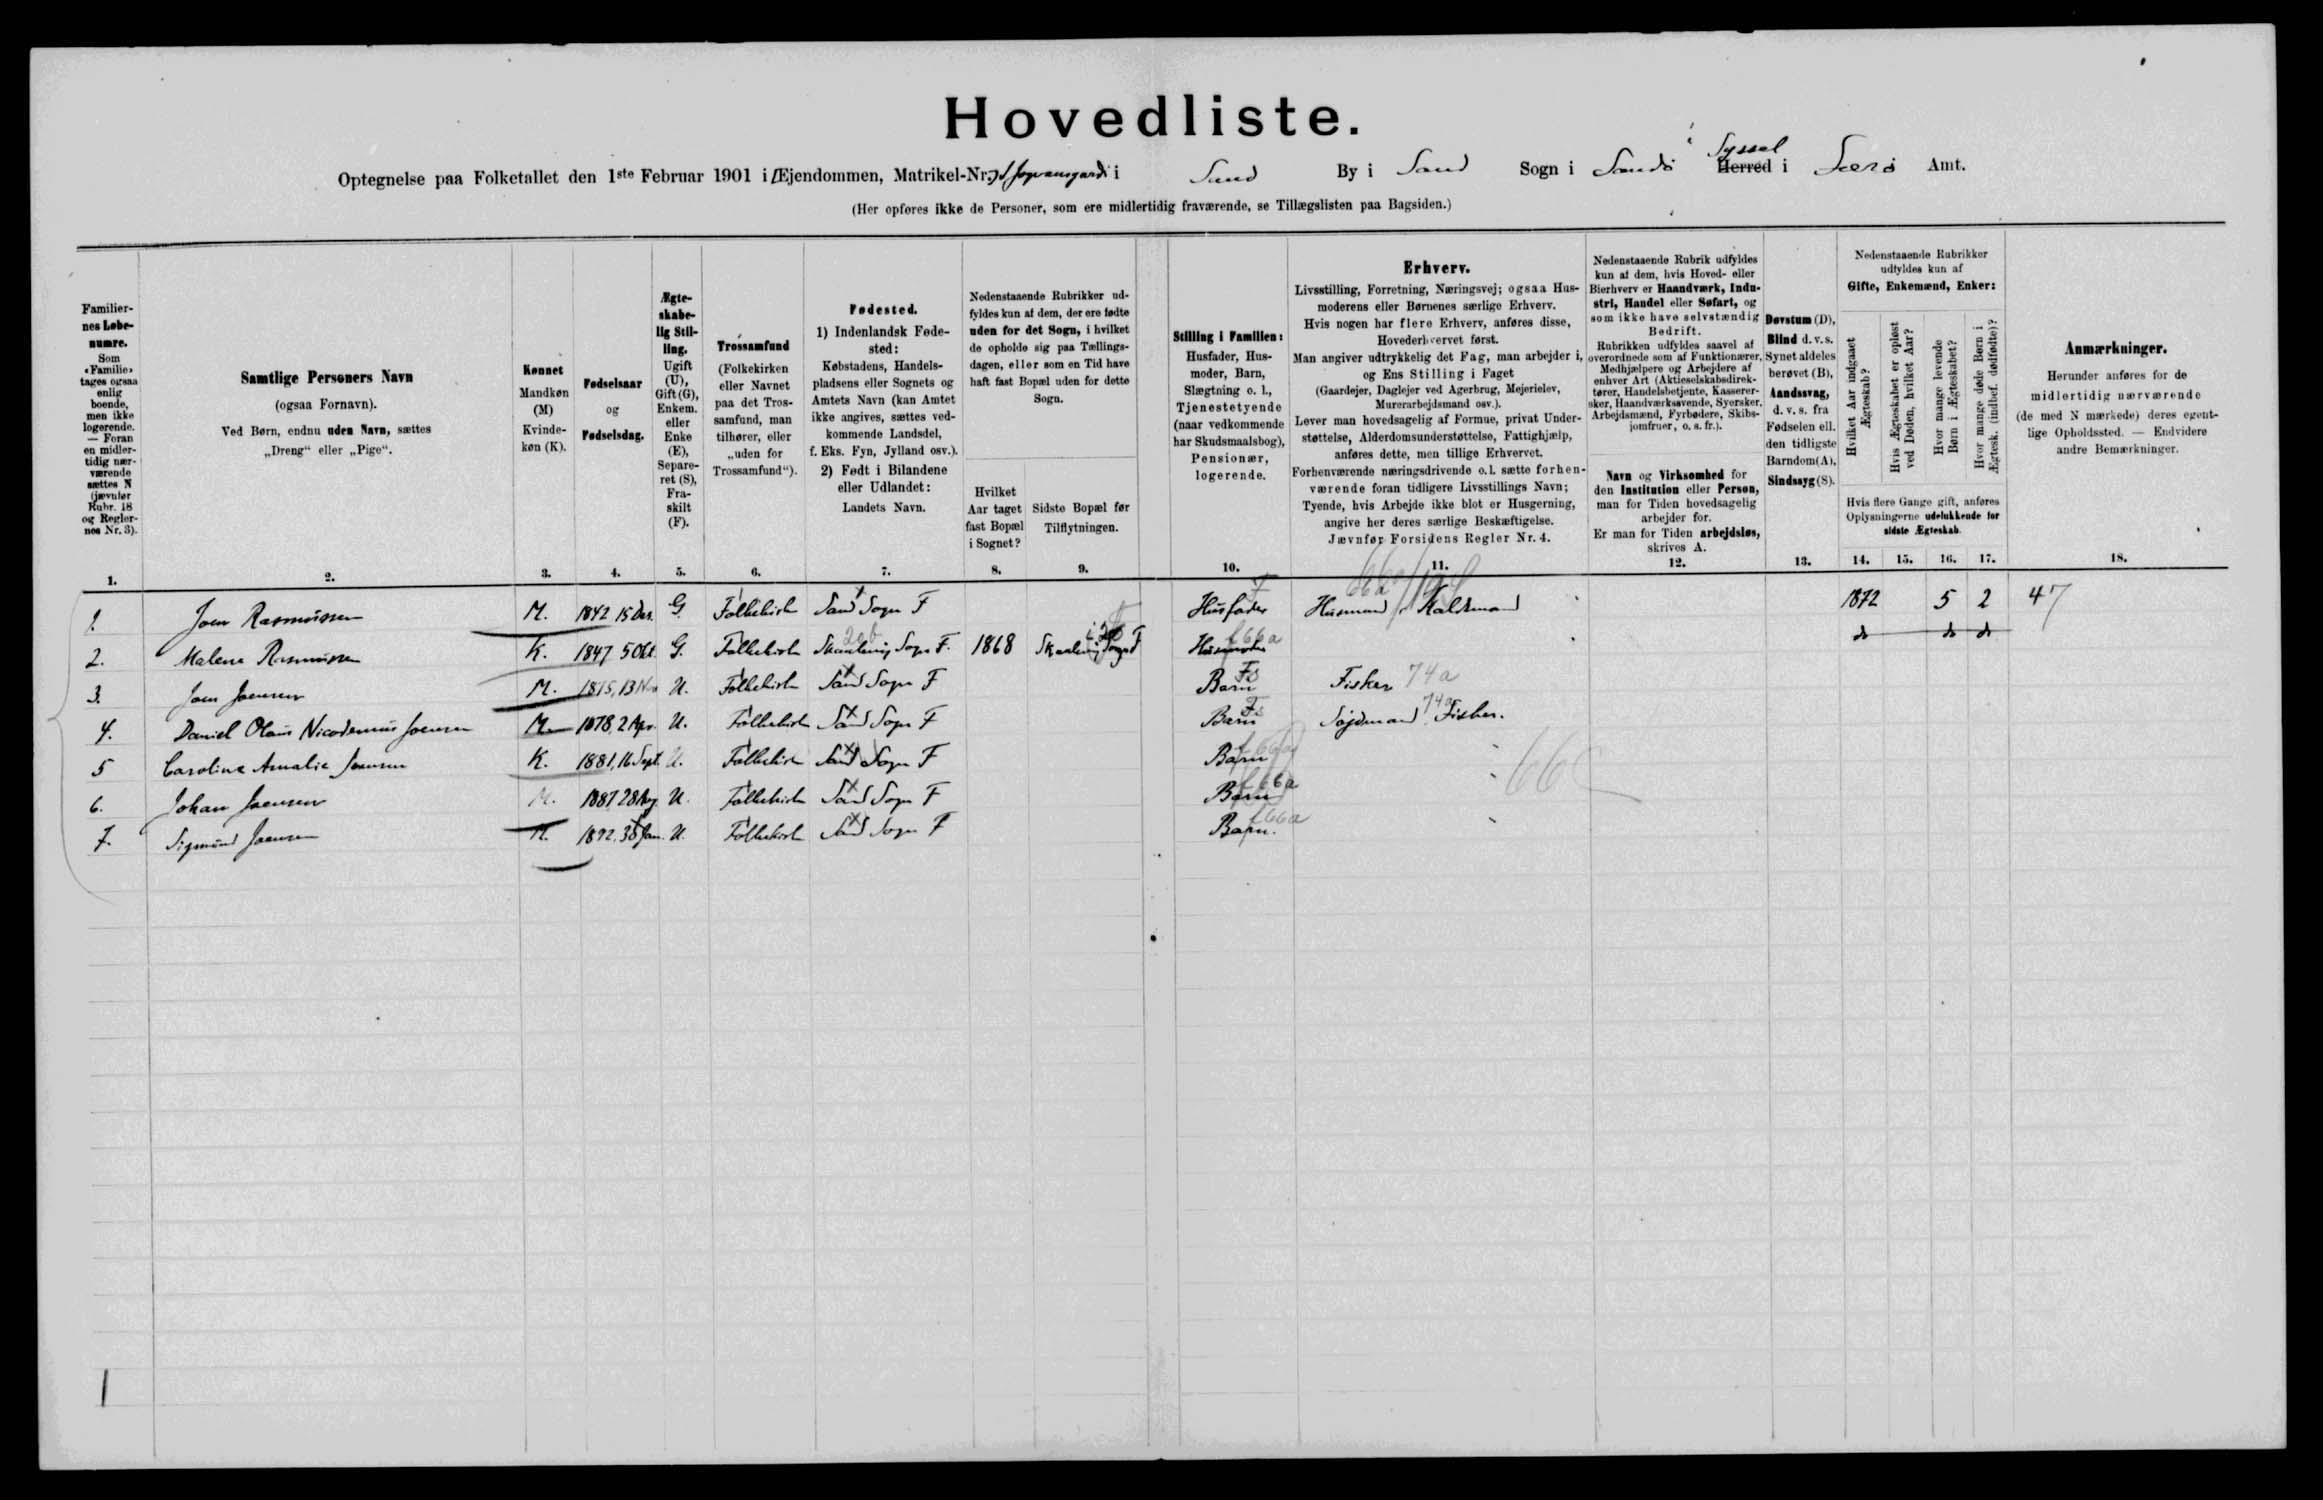 Hovedliste.
Optegnelse paa Folketallet den 1ste Februar 1901 i Ejendommen, Matrikel-Nr. i Sand By i Sand Sogn i Sandø Syssel Herred i Færø Amt.
(Her opføres ikke de Personer, som ere midlertidig fraværende, se Tillægslisten paa Bagsiden.)
Familiernes Løbenumre.
Som «Familie» tages ogsaa enlig boende, men ikke logerende. — Foran en midlertidig nærværende sættes N (jævnfør Rubr. 18 og Reglernes Nr. 3).
1.
Samtlige Personers Navn
(ogsaa Fornavn).
Ved Børn, endnu uden Navn, sættes
„Dreng“ eller „Pige“.
2.
Kønnet
Mandkøn (M)
Kvindekøn (K).
3.
Fødselsaar
og
Fødselsdag.
4.
Ægteskabelig Stilling.
Ugift (U), Gift (G), Enkem. eller Enke (E), Separeret (S), Fraskilt (F).
5.
Trossamfund
(Folkekirken eller Navnet paa det Trossamfund, man tilhører, eller „uden for Trossamfund“).
6.
Fødested.
1) Indenlandsk Fødested:
Købstadens, Handelspladsens eller Sognets og Amtets Navn (kan Amtet ikke angives, sættes vedkommende Landsdel, f. Eks. Fyn, Jylland osv.).
2) Født i Bilandene eller Udlandet:
Landets Navn.
7.
Nedenstaaende Rubrikker udfyldes kun af dem, der ere fødte uden for det Sogn, i hvilket de opholde sig paa Tællingsdagen, eller som en Tid have haft fast Bopæl uden for dette Sogn.
Hvilket Aar taget fast Bopæl i Sognet?
8.
Sidste Bopæl før Tilflytningen.
9.
Stilling i Familien:
Husfader, Husmoder, Barn, Slægtning o. l., Tjenestetyende (naar vedkommende har Skudsmaalsbog), Pensionær, logerende.
10.
Erhverv.
Livsstilling, Forretning, Næringsvej; ogsaa Husmoderens eller Børnenes særlige Erhverv.
Hvis nogen har flere Erhverv, anføres disse, Hovederhvervet først.
Man angiver udtrykkelig det Fag, man arbejder i, og Ens Stilling i Faget
(Gaardejer, Daglejer ved Agerbrug, Mejerielev, Murerarbejdsmand osv.).
Lever man hovedsagelig af Formue, privat Understøttelse, Alderdomsunderstøttelse, Fattighjælp, anføres dette, men tillige Erhvervet.
Forhenværende næringsdrivende o. l. sætte forhenværende foran tidligere Livsstillings Navn;
Tyende, hvis Arbejde ikke blot er Husgerning, angive her deres særlige Beskæftigelse.
Jævnfør Forsidens Regler Nr. 4.
11.
Nedenstaaende Rubrik udfyldes kun af dem, hvis Hoved- eller Bierhverv er Haandværk, Industri, Handel eller Søfart, og som ikke have selvstændig Bedrift.
Rubrikken udfyldes saavel af overordnede som af Funktionærer, Medhjælpere og Arbejdere af enhver Art (Aktieselskabsdirektører, Handelsbetjente, Kasserersker, Haandværkssvende, Syersker, Arbejdsmænd, Fyrbødere, Skibsjomfruer, o. s. fr.).
Navn og Virksomhed for den Institution eller Person, man for Tiden hovedsagelig arbejder for.
Er man for Tiden arbejdsløs, skrives A.
12.
Døvstum (D), Blind d. v. s. Synet aldeles berøvet (B), Aandssvag, d. v. s. fra Fødselen ell. den tidligste Barndom (A), Sindssyg (S).
13.
Nedenstaaende Rubrikker udfyldes kun af
Gifte, Enkemænd, Enker:
Hvilket Aar indgaaet Ægteskab?
Hvis Ægteskabet er opløst ved Døden, hvilket Aar?
Hvor mange levende Børn i Ægteskabet?
Hvor mange døde Børn i Ægtesk. (indbef. dødfødte)?
Hvis flere Gange gift, anføres Oplysningerne udelukkende for sidste Ægteskab.
14. 15. 16. 17.
Anmærkninger.
Herunder anføres for de midlertidig nærværende (de med N mærkede) deres egentlige Opholdssted. — Endvidere andre Bemærkninger.
18.
1. Joen Rasmussen M. 1842 15 Dec. G. Folkekirk Sand Sogn F Husfader F Husmand, 1872 5 2 47
2. Malene Rasmussen K. 1847 5 Okt G. Folkekirk Skaalevig Sogn F. 1868 Skaalevig Sogn F Husmoder f66a do do do
3. Joen Joensen M. 1875, 13 Nov U. Folkekirk Sand Sogn F Barn Fs Fisker 74a
4. Daniel Olaus Nicodemus Joensen M. 1878, 2 Apr. U. Folkekirk Sand Sogn F Barn Fs Fisker. 74a
5 Caroline Amalie Joensen K. 1881, 16 Sept. U. Folkekirk Sand Sogn F Barn f66a
6. Johan Joensen M. 1887 28 Aug U. Folkekirk Sand Sogn F Barn f66a
7. Sigmund Joensen M. 1892. 30 Jan. U. Folkekirk Sand Sogn F Barn. f66a